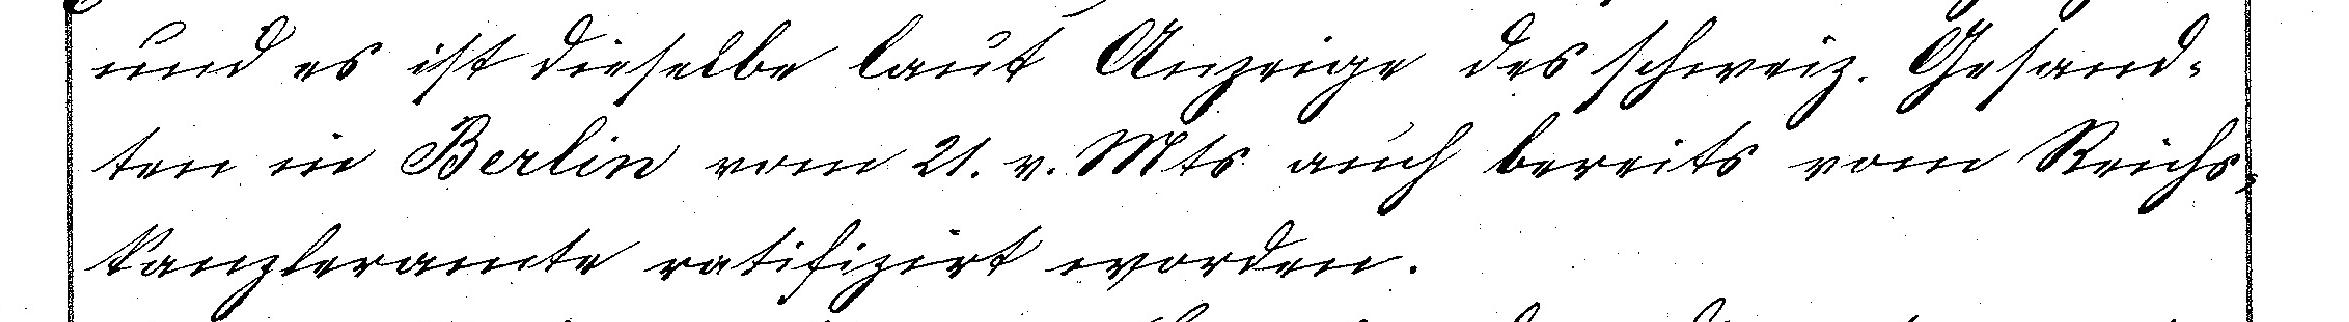 und es ist dieselbe laut Anzeige des schweiz. Gesand-
ten in Berlin vom 21. v. Mts auch bereits vom Reichs-
kanzleramte ratifizirt worden.